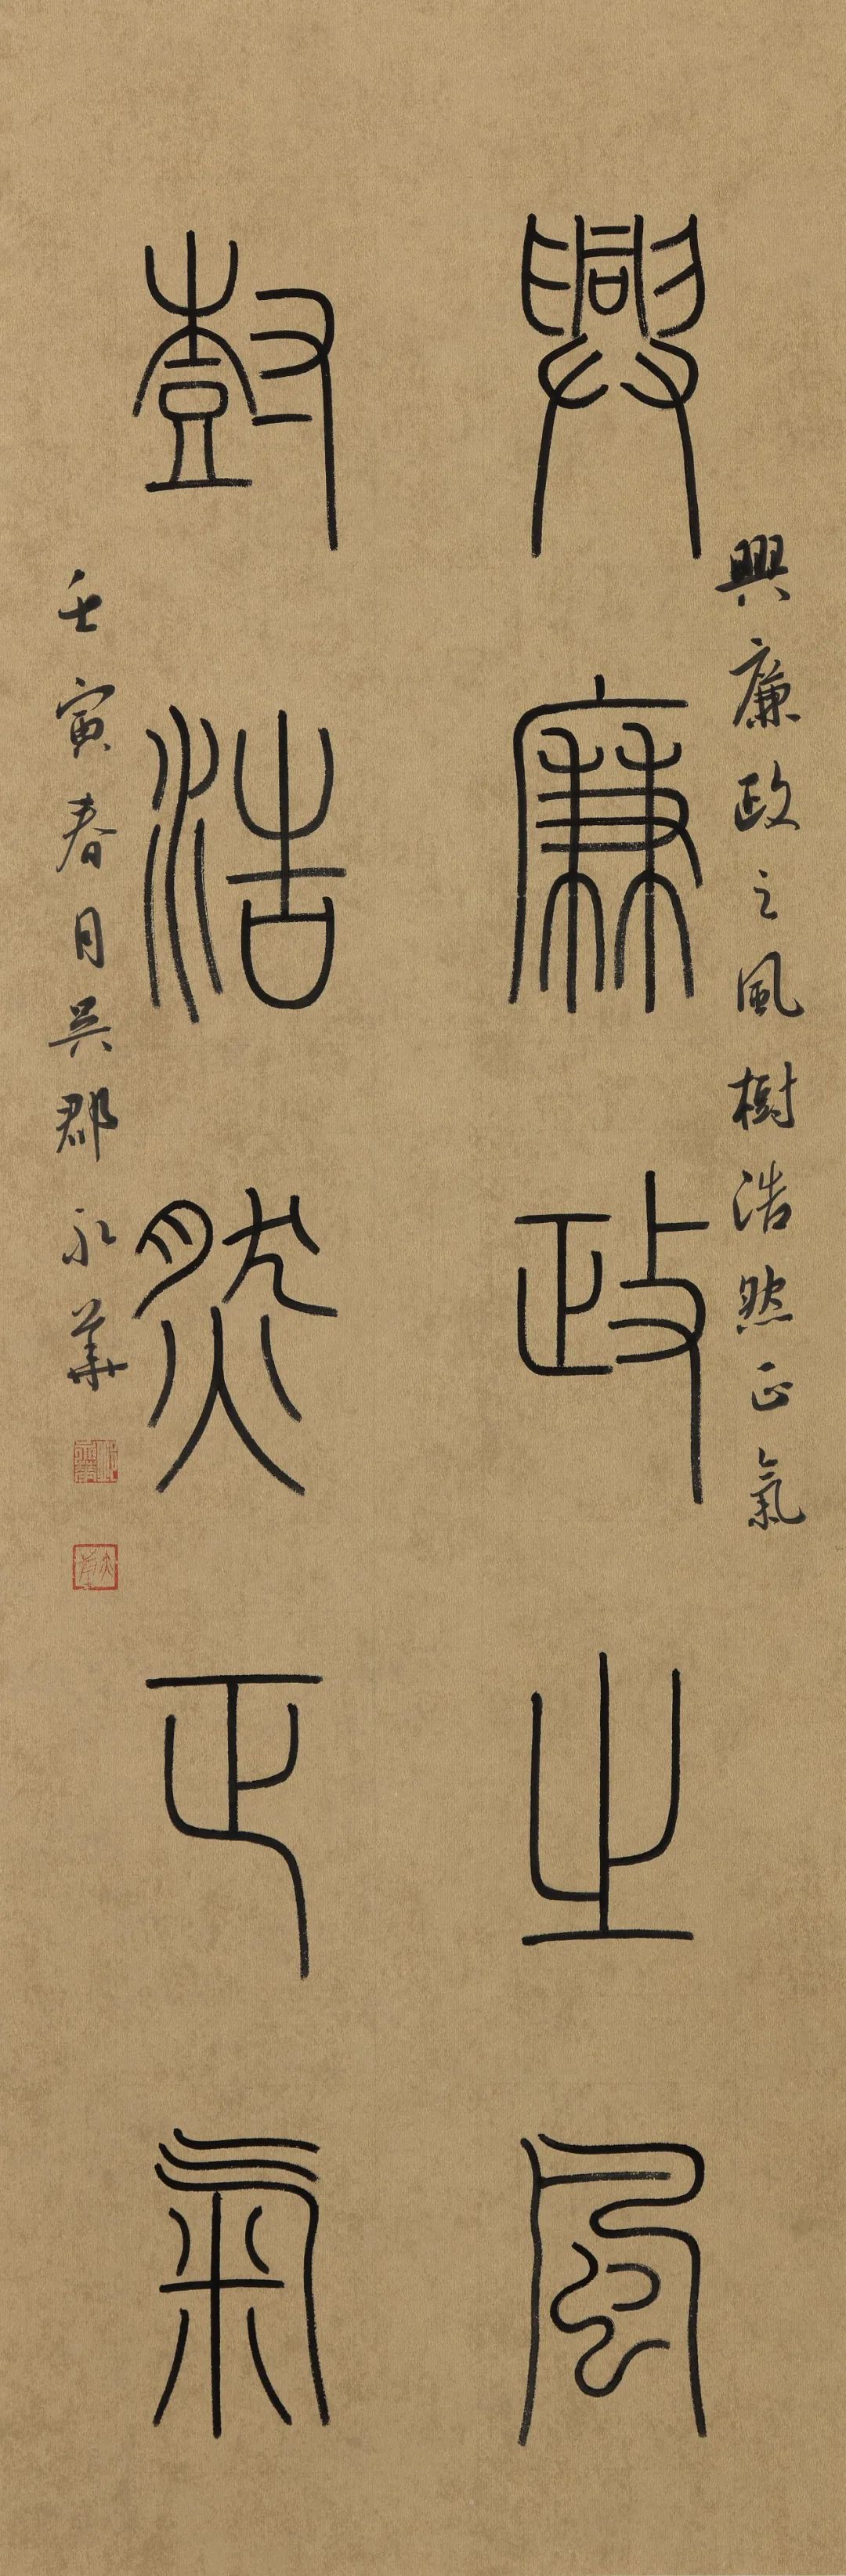 興廉政之風樹浩然正氣
興廉政之風
尌浩然正氣
壬寅春月吳郡永華